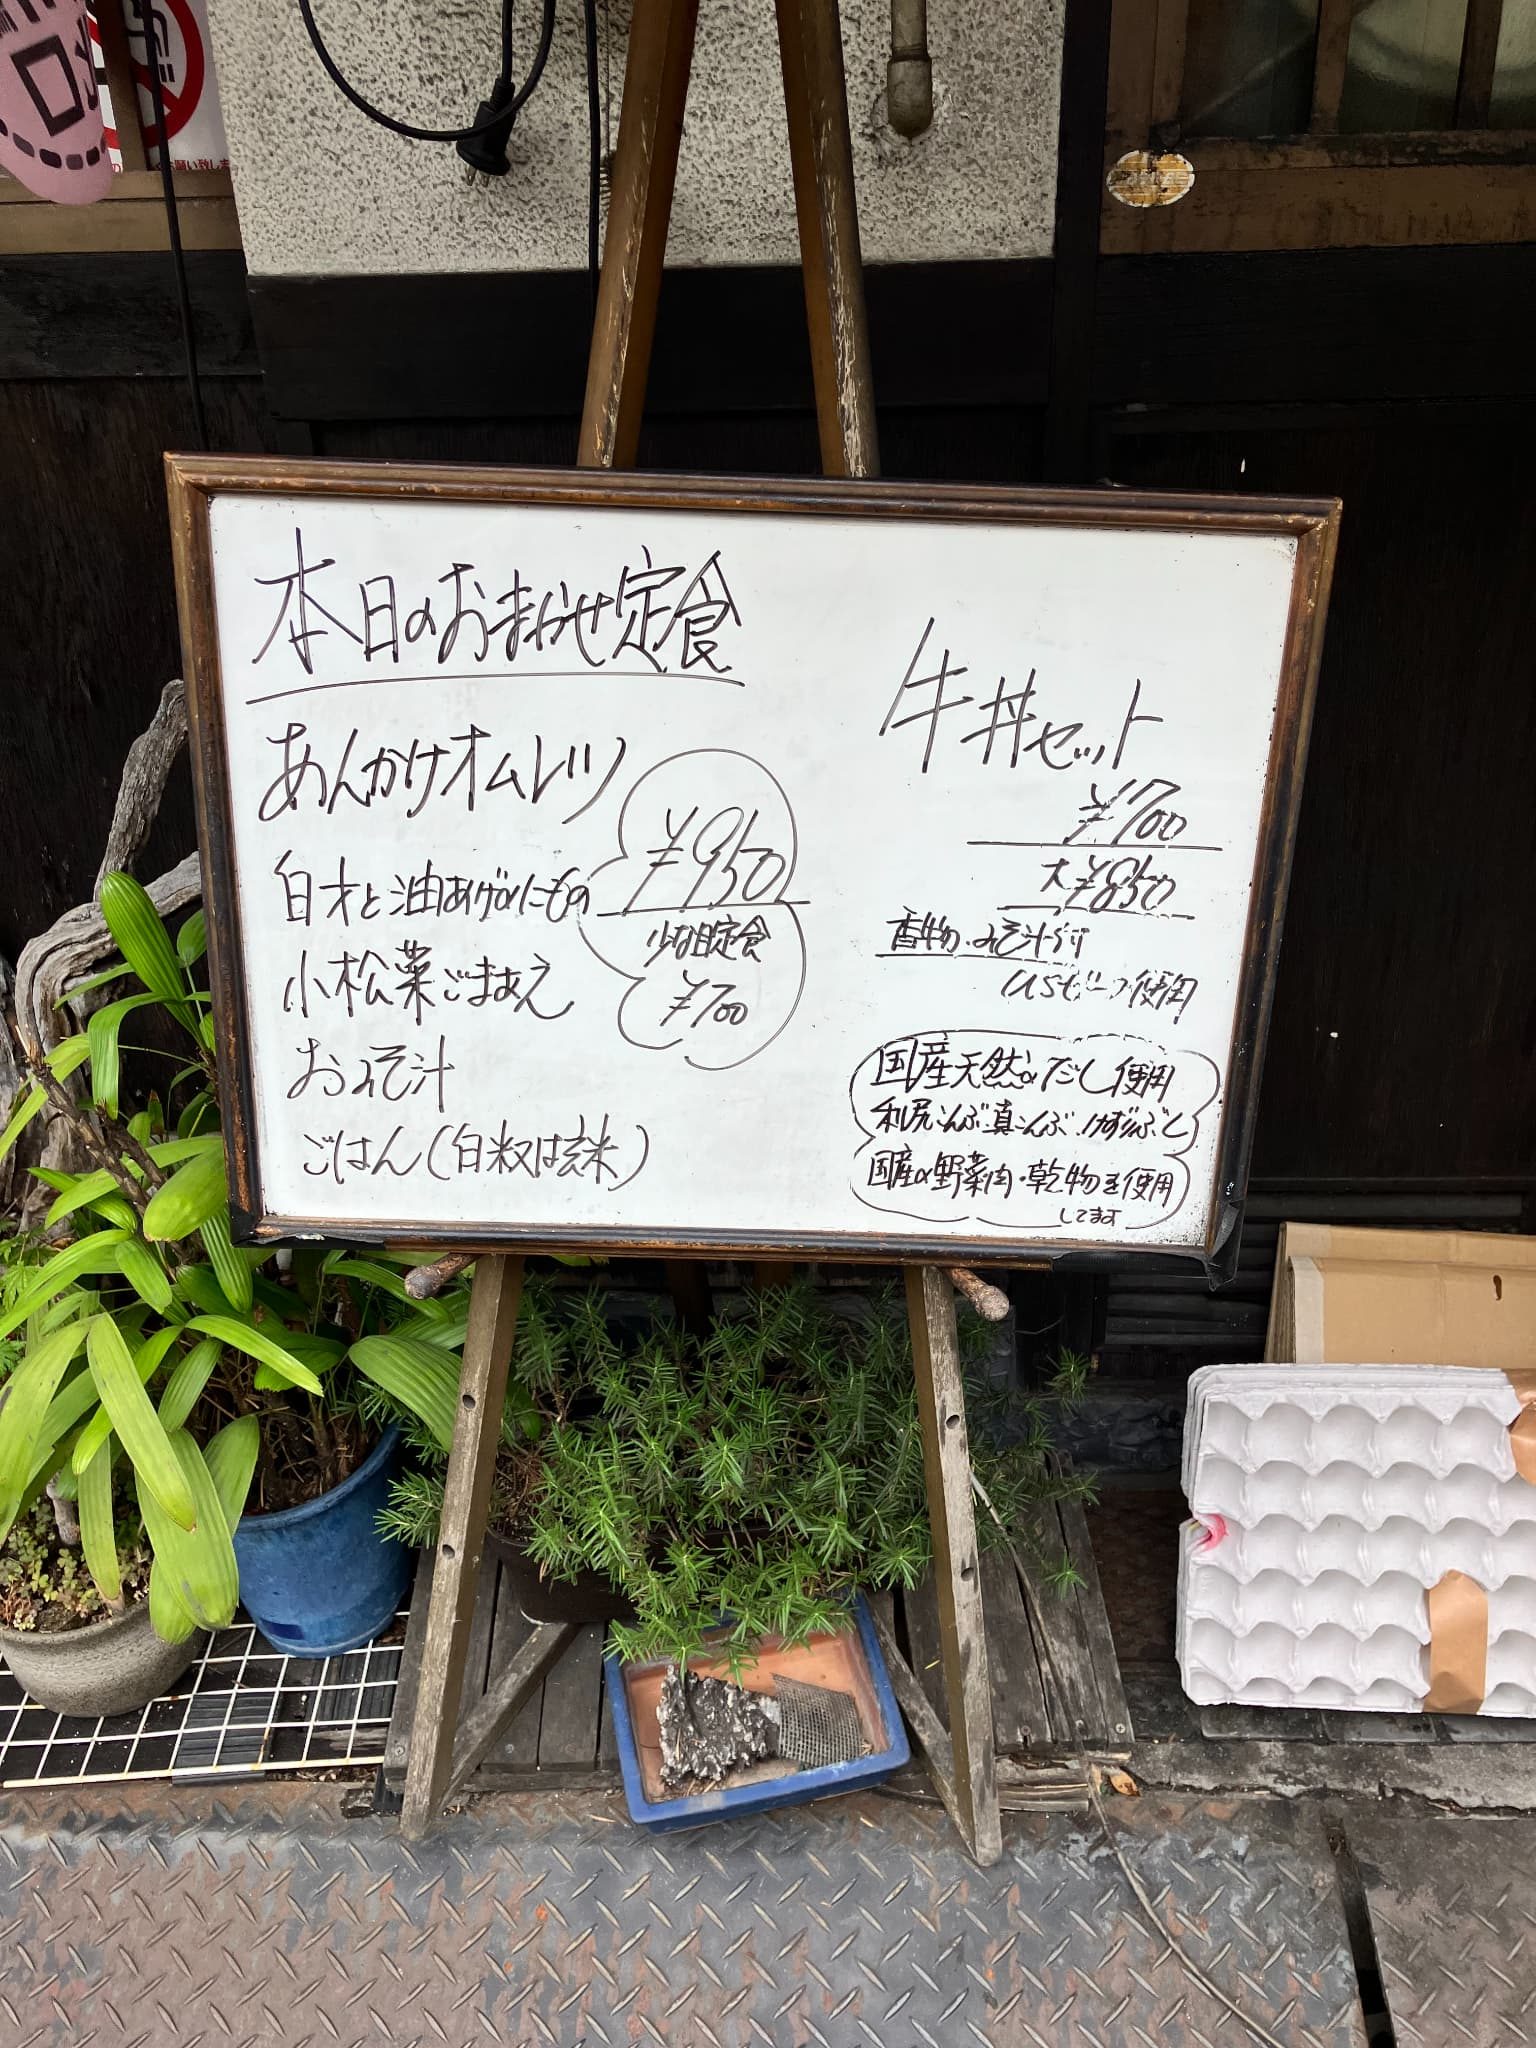 本日のおまかせ定食
あんかけオムレツ
白才と油あげのにもの
小松菜ごまあえ
おみそ汁
ごはん(白米又は玄米)
¥950
少な目定食
¥700
牛丼セット
¥700
大¥850
香物・みそ汁付
USビーフ使用
国産天然のだし使用
利尻こんぶ・真こんぶ・けずりぶし
国産の野菜肉・乾物を使用
してます
お願い致しま